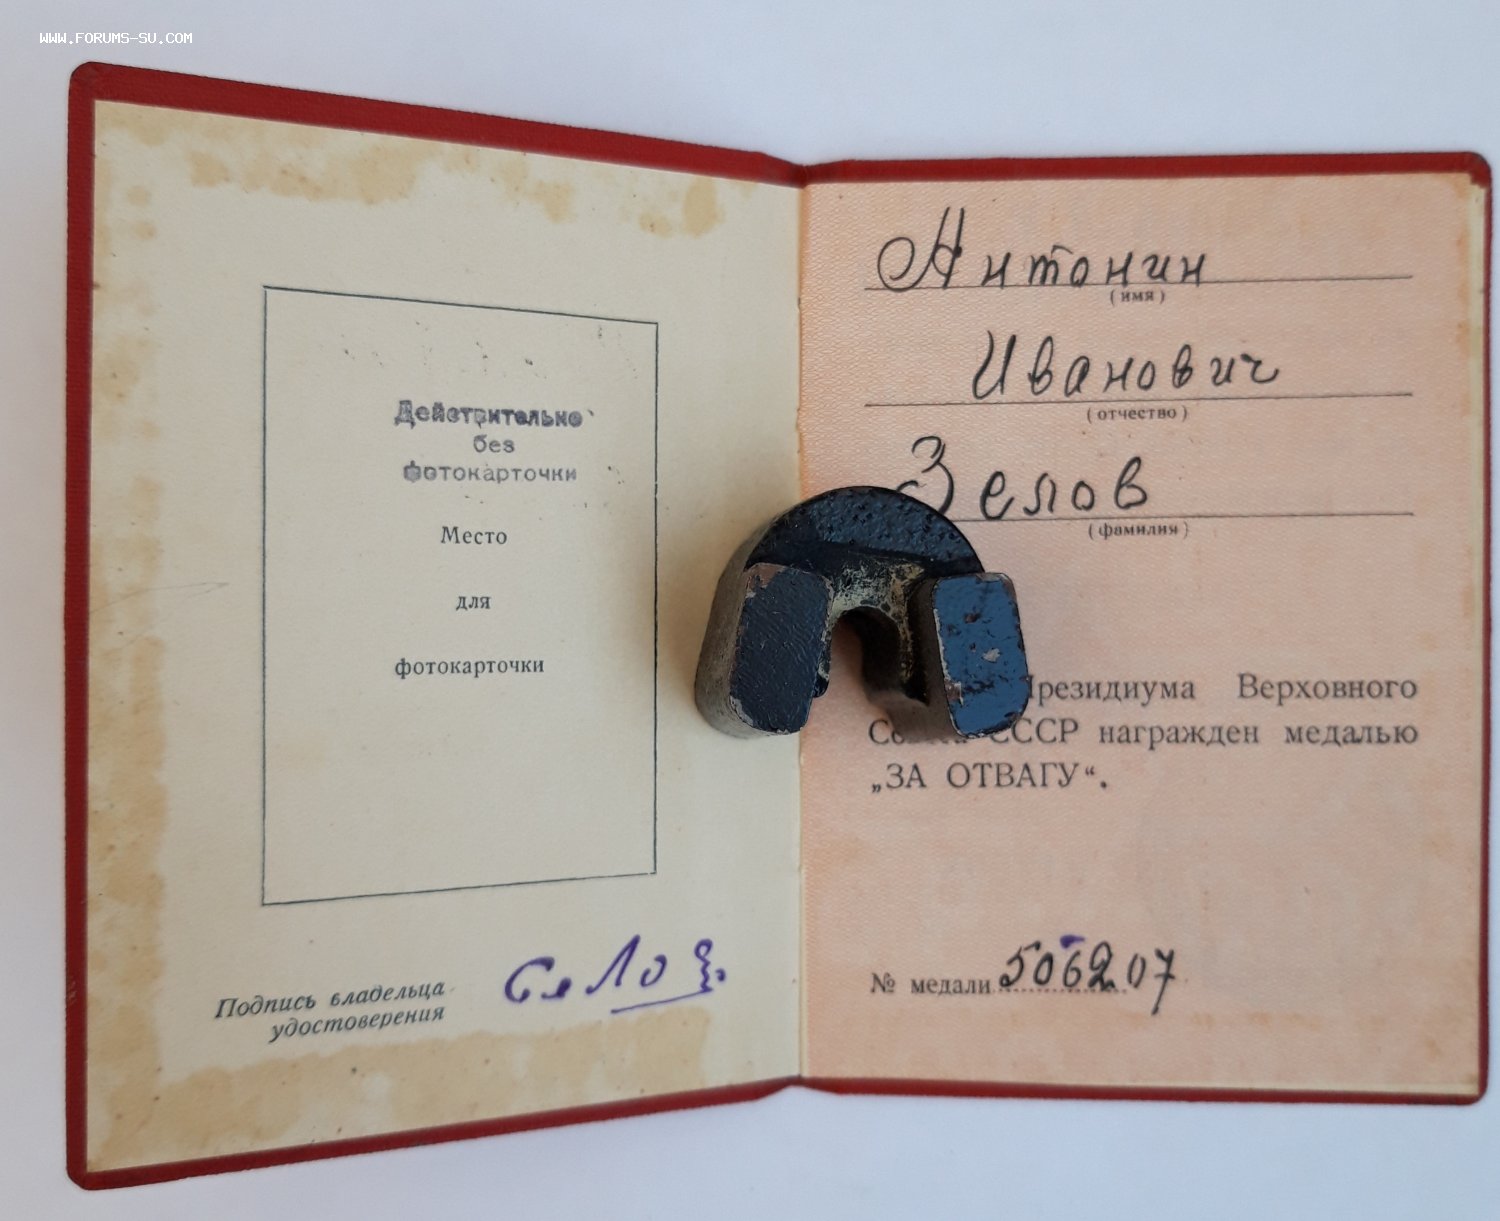 WWW.FORUMS-SU.COM
Действительно
без
фотокарточки
Место
для
фотокарточки
Подпись владельца
удостоверения
Антонин
(имя)
Иванович
(отчество)
Зелов
(фамилия)
Президиума Верховного
СССР награжден медалью
„ЗА ОТВАГУ“.
№ медали 5062207